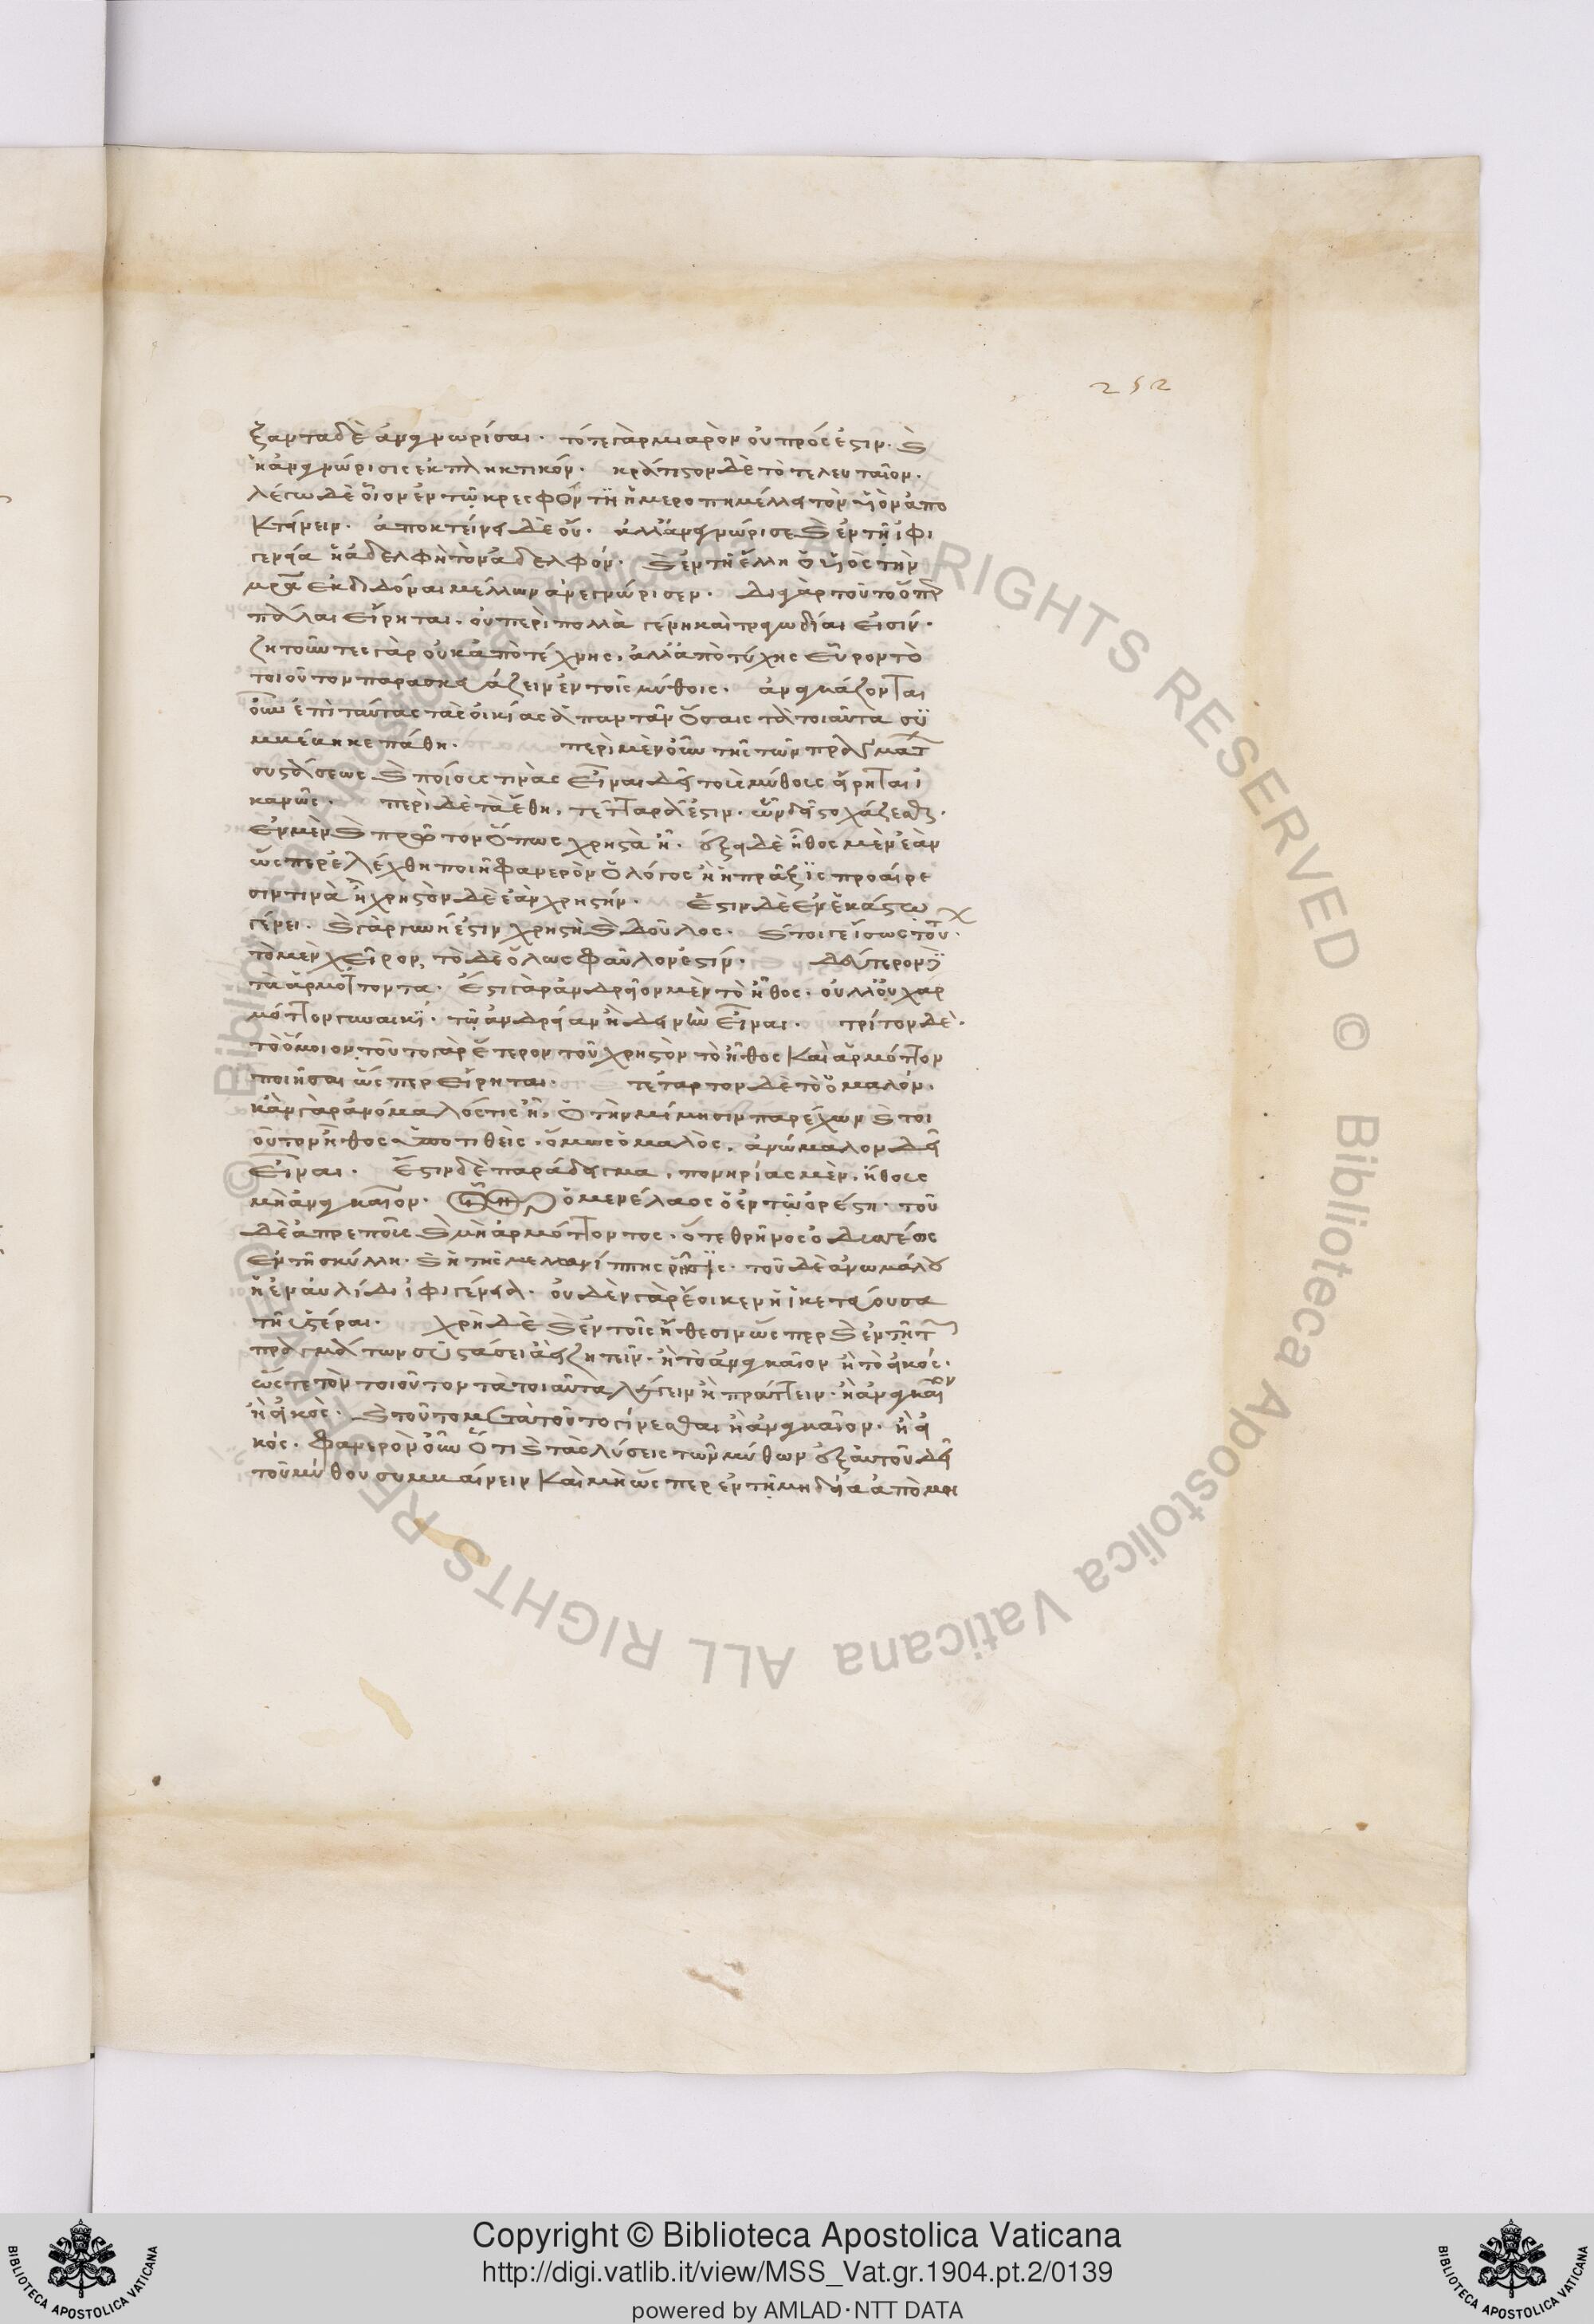 252
ξαντα δὲ ἀναγνωρίσαι· τό τε γὰρ μιαρὸν οὐ πρόσεστιν· καὶ
ἡ ἀναγνώρισις ἐκπληκτικόν· κράτιστον δὲ τὸ τελευταῖον·
λέγω δὲ οἷον ἐν τῷ κρεσφόντῃ ἡ μερόπη μέλλει τὸν υἱὸν ἀπο
κτείνειν· ἀποκτείνει δὲ οὔ· ἀλλ' ἀνεγνώρισε καὶ ἐν τῇ ἰφι
γενείᾳ ἡ ἀδελφὴ τὸν ἀδελφόν· καὶ ἐν τῇ ἕλλῃ ὁ υἱὸς τὴν
μητέρα ἐκδιδόναι μέλλων ἀνεγνώρισεν· διὰ γὰρ τοῦτο ὅπερ
πάλαι εἴρηται· οὐ περὶ πολλὰ γένη καὶ τραγωδίαι εἰσίν·
ζητοῦντες γὰρ οὐκ ἀπὸ τέχνης, ἀλλ' ἀπὸ τύχης εὗρον τὸ
τοιοῦτον παρασκευάζειν ἐν τοῖς μύθοις· ἀναγκάζονται
οὖν ἐπὶ ταύτας τὰς οἰκίας ἀπανταν ὅσαις τὰ τοιαῦτα συ
μβέβηκε πάθη· περὶ μὲν οὖν τῆς τῶν πραγμάτων
συστάσεως καὶ ποίους τινὰς εἶναι δεῖ τοὺς μύθους εἴρηται ἱ
κανῶς· περὶ δὲ τὰ ἔθη, τέτταρά ἐστιν· ὧν δεῖ στοχάζεσθαι·
ἓν μὲν καὶ πρῶτον ὅπως χρηστὰ ᾖ· ἕξει δὲ ἦθος μὲν ἐὰν
ὥσπερ ἐλέχθη ποιῇ φανερὸν ὁ λόγος ἢ ἡ πρᾶξις προαίρε
σίν τινα ἢ χρηστὸν δὲ ἐὰν χρηστήν· ἔστιν δὲ ἐν ἑκάστῳ
γένει· καὶ γὰρ γυνή ἐστιν χρηστὴ καὶ δοῦλος· καίτοι γε ἴσως τοῦτ·
τὸ μὲν χεῖρον, τὸ δὲ ὅλως φαῦλόν ἐστιν· δεύτερον
τὰ ἁρμόττοντα· ἔστι γὰρ ἀνδρεῖον μὲν τὸ ἦθος· ἀλλ' οὐχ ἁρ
μόττον γυναικί· τῷ ἀνδρείαν ἢ δεινὴν εἶναι· τρίτον δὲ·
τὸ ὅμοιον, τοῦτο γὰρ ἕτερον τοῦ χρηστὸν τὸ ἦθος καὶ ἁρμόττον
ποιῆσαι ὥσπερ εἴρηται· τέταρτον δὲ τὸ ὁμαλόν·
κἂν γὰρ ἀνόμαλός τις ᾖ, ὁ τὴν μίμησιν παρέχων καὶ τοι
οῦτον ἦθος ὑποτιθεὶς· ὅμως ὁμαλὸς, ἀνώμαλον δεῖ
εἶναι· ἔστιν δὲ παράδειγμα, πονηρίας μὲν, ἤθους
μὴ ἀναγκαῖον· οἷον ὁ μενέλαος ὁ ἐν τῷ ὀρέστῃ· τοῦ
δὲ ἀπρεποῦς καὶ μὴ ἁρμόττοντος· ὅ τε θρῆνος ὀδυσσέως
ἐν τῇ σκύλλῃ· καὶ ἡ τῆς μελανίππης ῥῆσις· τοῦ δὲ ἀνωμάλου
ἡ ἐν αὐλίδι ἰφιγένεια· οὐδὲν γὰρ ἔοικεν ἡ ἱκετεύουσα
τῇ ὑστέρᾳ· χρὴ δὲ καὶ ἐν τοῖς ἤθεσιν ὥσπερ καὶ ἐν τῇ τῶν
πραγμάτων συστάσει ἀεὶ ζητεῖν· ἢ τὸ ἀναγκαῖον ἢ τὸ εἰκός·
ὥστε τὸν τοιοῦτον τὰ τοιαῦτα λέγειν ἢ πράττειν· ἢ ἀναγκαῖον
ἢ εἰκὸς· καὶ τοῦτο μετὰ τοῦτο γίνεσθαι ἢ ἀναγκαῖον· ἢ εἰ
κός· φανερὸν οὖν ὅτι καὶ τὰς λύσεις τῶν μύθων ἐξ αὐτοῦ δεῖ
τοῦ μύθου συμβαίνειν καὶ μὴ ὥσπερ ἐν τῇ μηδείᾳ ἀπὸ μη
© Biblioteca Apostolica Vaticana ALL RIGHTS RESERVED © Biblioteca Apostolica Vaticana ALL RIGHTS RESERVED
BIBLIOTECA APOSTOLICA VATICANA
Copyright © Biblioteca Apostolica Vaticana
http://digi.vatlib.it/view/MSS_Vat.gr.1904.pt.2/0139
powered by AMLAD·NTT DATA
BIBLIOTECA APOSTOLICA VATICANA